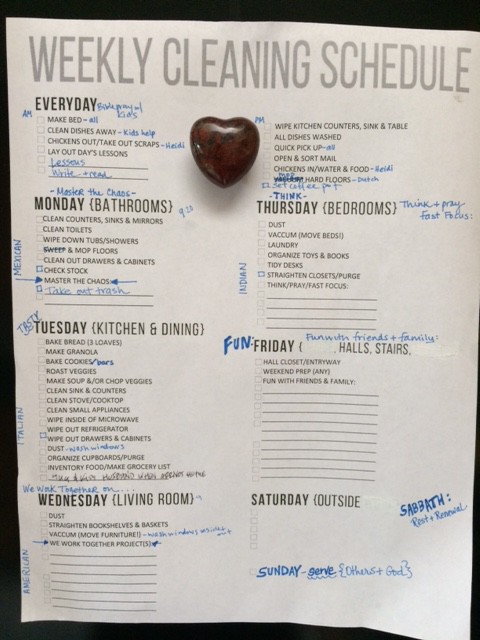 WEEKLY CLEANING SCHEDULE
EVERYDAY Bible pray w/ Kids
AM
MAKE BED - all
CLEAN DISHES AWAY - Kids help
CHICKENS OUT/TAKE OUT SCRAPS - Heidi
LAY OUT DAY'S LESSONS
Lessons
Write + read
PM
WIPE KITCHEN COUNTERS, SINK & TABLE
ALL DISHES WASHED
QUICK PICK UP - all
OPEN & SORT MAIL
CHICKENS IN/WATER & FOOD - Heidi
HARD FLOORS - Dutch
Set coffee pot
- Master the Chaos -
MONDAY {BATHROOMS}
MEXICAN
CLEAN COUNTERS, SINKS & MIRRORS
CLEAN TOILETS
WIPE DOWN TUBS/SHOWERS
SWEEP & MOP FLOORS
CLEAN OUT DRAWERS & CABINETS
CHECK STOCK
MASTER THE CHAOS
Take out trash
- THINK -
THURSDAY {BEDROOMS} Think + pray
fast Focus:
INDIAN
DUST
VACCUM (MOVE BEDS!)
LAUNDRY
ORGANIZE TOYS & BOOKS
TIDY DESKS
STRAIGHTEN CLOSETS/PURGE
THINK/PRAY/FAST FOCUS:
TASTY
TUESDAY {KITCHEN & DINING}
ITALIAN
BAKE BREAD (3 LOAVES)
MAKE GRANOLA
BAKE COOKIES/bars
ROAST VEGGIES
MAKE SOUP &/OR CHOP VEGGIES
CLEAN SINK & COUNTERS
CLEAN STOVE/COOKTOP
CLEAN SMALL APPLIANCES
WIPE INSIDE OF MICROWAVE
WIPE OUT REFRIGERATOR
WIPE OUT DRAWERS & CABINETS
DUST - wash windows
ORGANIZE CUPBOARDS/PURGE
INVENTORY FOOD/MAKE GROCERY LIST
HUSBAND WHEN ARRIVES HOME
Fun with friends + family:
FUN: FRIDAY { HALLS, STAIRS,
HALL CLOSET/ENTRYWAY
WEEKEND PREP (ANY)
FUN WITH FRIENDS & FAMILY:
We Work Together on...
WEDNESDAY {LIVING ROOM}
AMERICAN
DUST
STRAIGHTEN BOOKSHELVES & BASKETS
VACCUM (MOVE FURNITURE!) - wash windows
WE WORK TOGETHER PROJECT(S)
SATURDAY {OUTSIDE
SABBATH:
Rest + Renewal
SUNDAY - serve {Others + God}